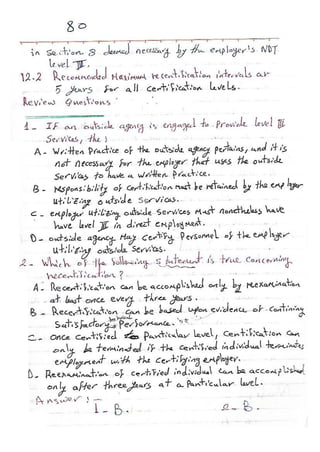 80
in Section 3 deemed necessary by the employer's NDT
level III.
12.2 Recommended Maximum recertification intervals are
5 years for all certification levels.
Review Questions
1- If an outside agency is engaged to Provide level III
Services, the :
A- Written Practice of the outside agency pertains, and it is
not necessary for the employer that uses the outside
Services to have a written practice.
B- responsibility of certification must be retained by the employer
utilizing outside Services.
C- employer utilizing outside Services must nonetheless have
have level III in direct employment.
D- outside agency May Certify Personnel of the employer
utilizing outside Services.
2- Which of the following statement is true concerning
recertification?
A- Recertification can be accomplished only by reexamination
at least once every three years.
B- Recertification can be based upon evidence of continuing
Satisfactory Performance.
C- once Certified Particular level, Certification can
only be terminated if the certified individual terminates
employment with the Certifying employer.
D- Reexamination of certified individual can be accomplished
only after three years at a Particular level.
Answer:-
1- B. 2- B.